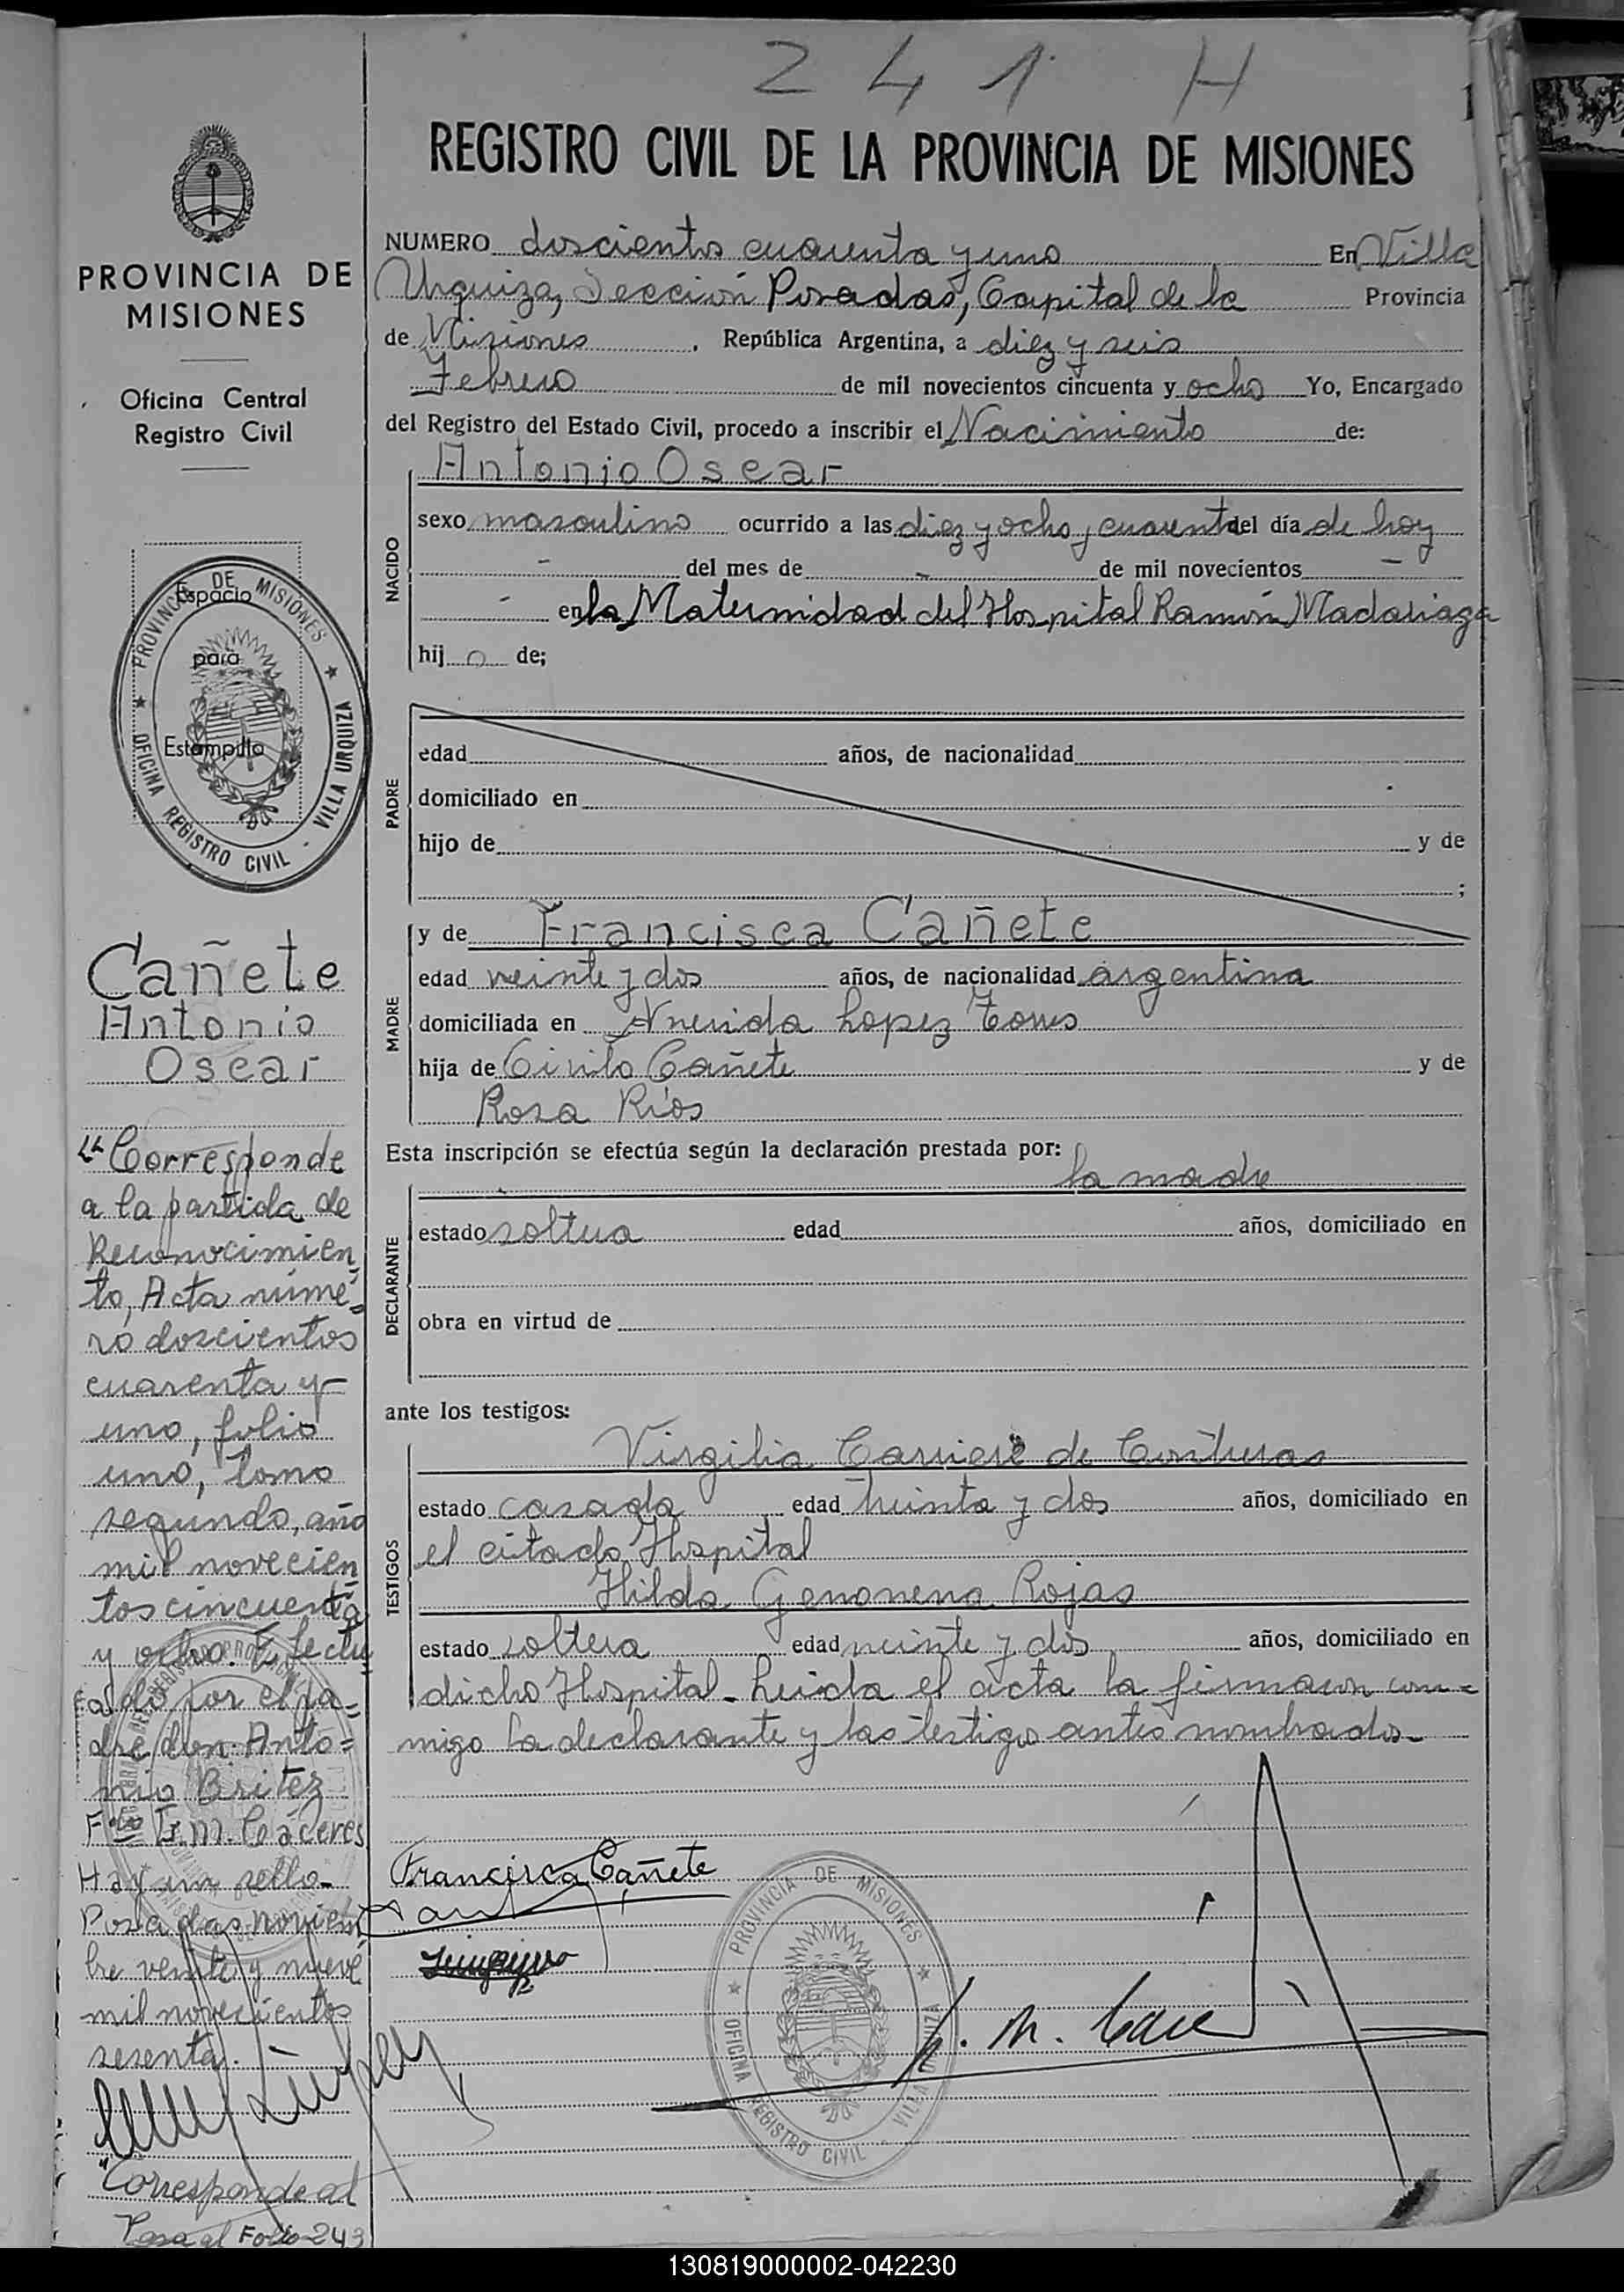 241 H
REGISTRO CIVIL DE LA PROVINCIA DE MISIONES
PROVINCIA DE
MISIONES
Oficina Central
Registro Civil
Espacio
para
Estampilla
PROVINCIA DE MISIONES
OFICINA REGISTRO CIVIL - VILLA URQUIZA
Cañete
Antonio
Oscar
"Corresponde
a la partida de
Reconocimien
to, Acta núme-
ro doscientos
cuarenta y
uno, folio
uno, tomo
segundo, año
mil novecien
tos cincuenta
y ocho. Efectu
ado por el pa-
dre don Anto-
nio Britez
Fdo. E. M. Cáceres
Hay un sello-
Posadas noviem
bre veinte y nueve
mil novecientos
sesenta.
"Corresponde al
Pasa al Folio 243
NUMERO doscientos cuarenta y uno En Villa
Urquiza, Sección Posadas, Capital de la Provincia
de Misiones, República Argentina, a diez y seis
Febrero de mil novecientos cincuenta y ocho Yo, Encargado
del Registro del Estado Civil, procedo a inscribir el Nacimiento de:
Antonio Oscar
NACIDO
sexo masculino ocurrido a las diez y ocho y cuarenta del día de hoy
- del mes de - de mil novecientos -
- en la Maternidad del Hospital Ramón Madariaga
hijo de;
PADRE
edad años, de nacionalidad
domiciliado en
hijo de y de
;
MADRE
y de Francisca Cañete
edad veinte y dos años, de nacionalidad argentina
domiciliada en Avenida Lopez Torres
hija de Cirilo Cañete y de
Rosa Ríos
Esta inscripción se efectúa según la declaración prestada por:
la madre
DECLARANTE
estado soltera edad años, domiciliado en
obra en virtud de
ante los testigos:
TESTIGOS
Virgilia Carriere de Contreras
estado casada edad treinta y dos años, domiciliado en
el citado Hospital
Hilda Genoneva Rojas
estado soltera edad veinte y dos años, domiciliado en
dicho Hospital. Leida el acta la firmaron con-
migo la declarante y los testigos antes nombrados-
Francisca Cañete
PROVINCIA DE MISIONES
OFICINA REGISTRO CIVIL - VILLA URQUIZA
130819000002-042230